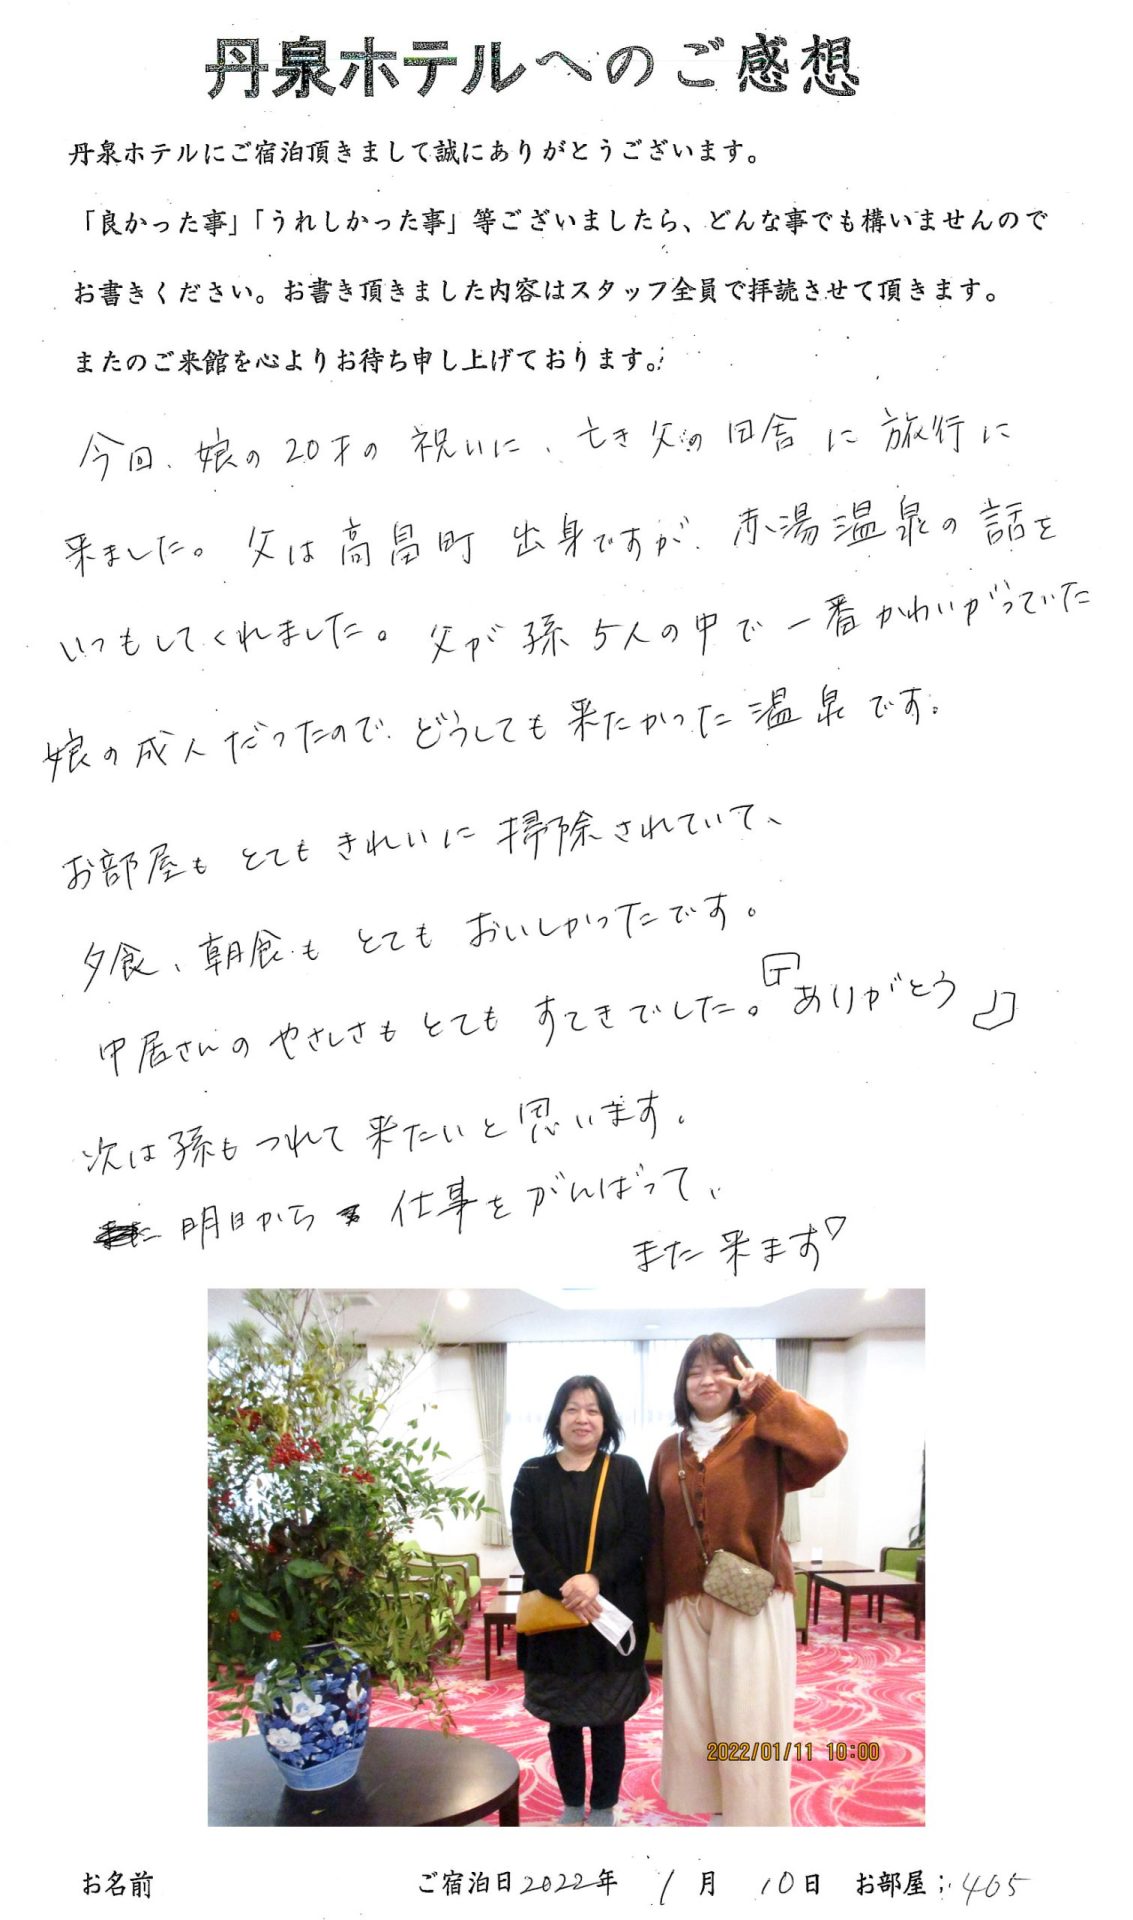 丹泉ホテルへのご感想
丹泉ホテルにご宿泊頂きまして誠にありがとうございます。
「良かった事」「うれしかった事」等ございましたら、どんな事でも構いませんので
お書きください。お書き頂きました内容はスタッフ全員で拝読させて頂きます。
またのご来館を心よりお待ち申し上げております。
今回、娘の20才の祝いに、亡き父の田舎に旅行に
来ました。父は高畠町出身ですが、赤湯温泉の話を
いつもしてくれました。父が孫5人の中で一番かわいがっていた
娘の成人だったので、どうしても来たかった温泉です。
お部屋もとてもきれいに掃除されていて、
夕食、朝食もとてもおいしかったです。
中居さんのやさしさもとてもすてきでした。『ありがとう』
次は孫もつれて来たいと思います。
明日から仕事をがんばって、
また来ます♡
2022/01/11 10:00
お名前 ご宿泊日2022年 1月 10日 お部屋; 405